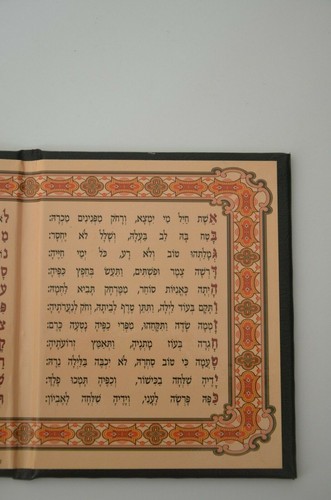 אֵשֶׁת חַיִל מִי יִמְצָא, וְרָחֹק מִפְּנִינִים מִכְרָהּ:
בָּטַח בָּהּ לֵב בַּעְלָהּ, וְשָׁלָל לֹא יֶחְסָר:
גְּמָלַתְהוּ טוֹב וְלֹא רָע, כֹּל יְמֵי חַיֶּיהָ:
דָּרְשָׁה צֶמֶר וּפִשְׁתִּים, וַתַּעַשׂ בְּחֵפֶץ כַּפֶּיהָ:
הָיְתָה כָּאֳנִיּוֹת סוֹחֵר, מִמֶּרְחָק תָּבִיא לַחְמָהּ:
וַתָּקָם בְּעוֹד לַיְלָה, וַתִּתֵּן טֶרֶף לְבֵיתָהּ, וְחֹק לְנַעֲרֹתֶיהָ:
זָמְמָה שָׂדֶה וַתִּקָּחֵהוּ, מִפְּרִי כַפֶּיהָ נָטְעָה כָּרֶם:
חָגְרָה בְעוֹז מָתְנֶיהָ, וַתְּאַמֵּץ זְרוֹעֹתֶיהָ:
טָעֲמָה כִּי טוֹב סַחְרָהּ, לֹא יִכְבֶּה בַּלַּיְלָה נֵרָהּ:
יָדֶיהָ שִׁלְּחָה בַכִּישׁוֹר, וְכַפֶּיהָ תָּמְכוּ פָלֶךְ:
כַּפָּהּ פָּרְשָׂה לֶעָנִי, וְיָדֶיהָ שִׁלְּחָה לָאֶבְיוֹן: